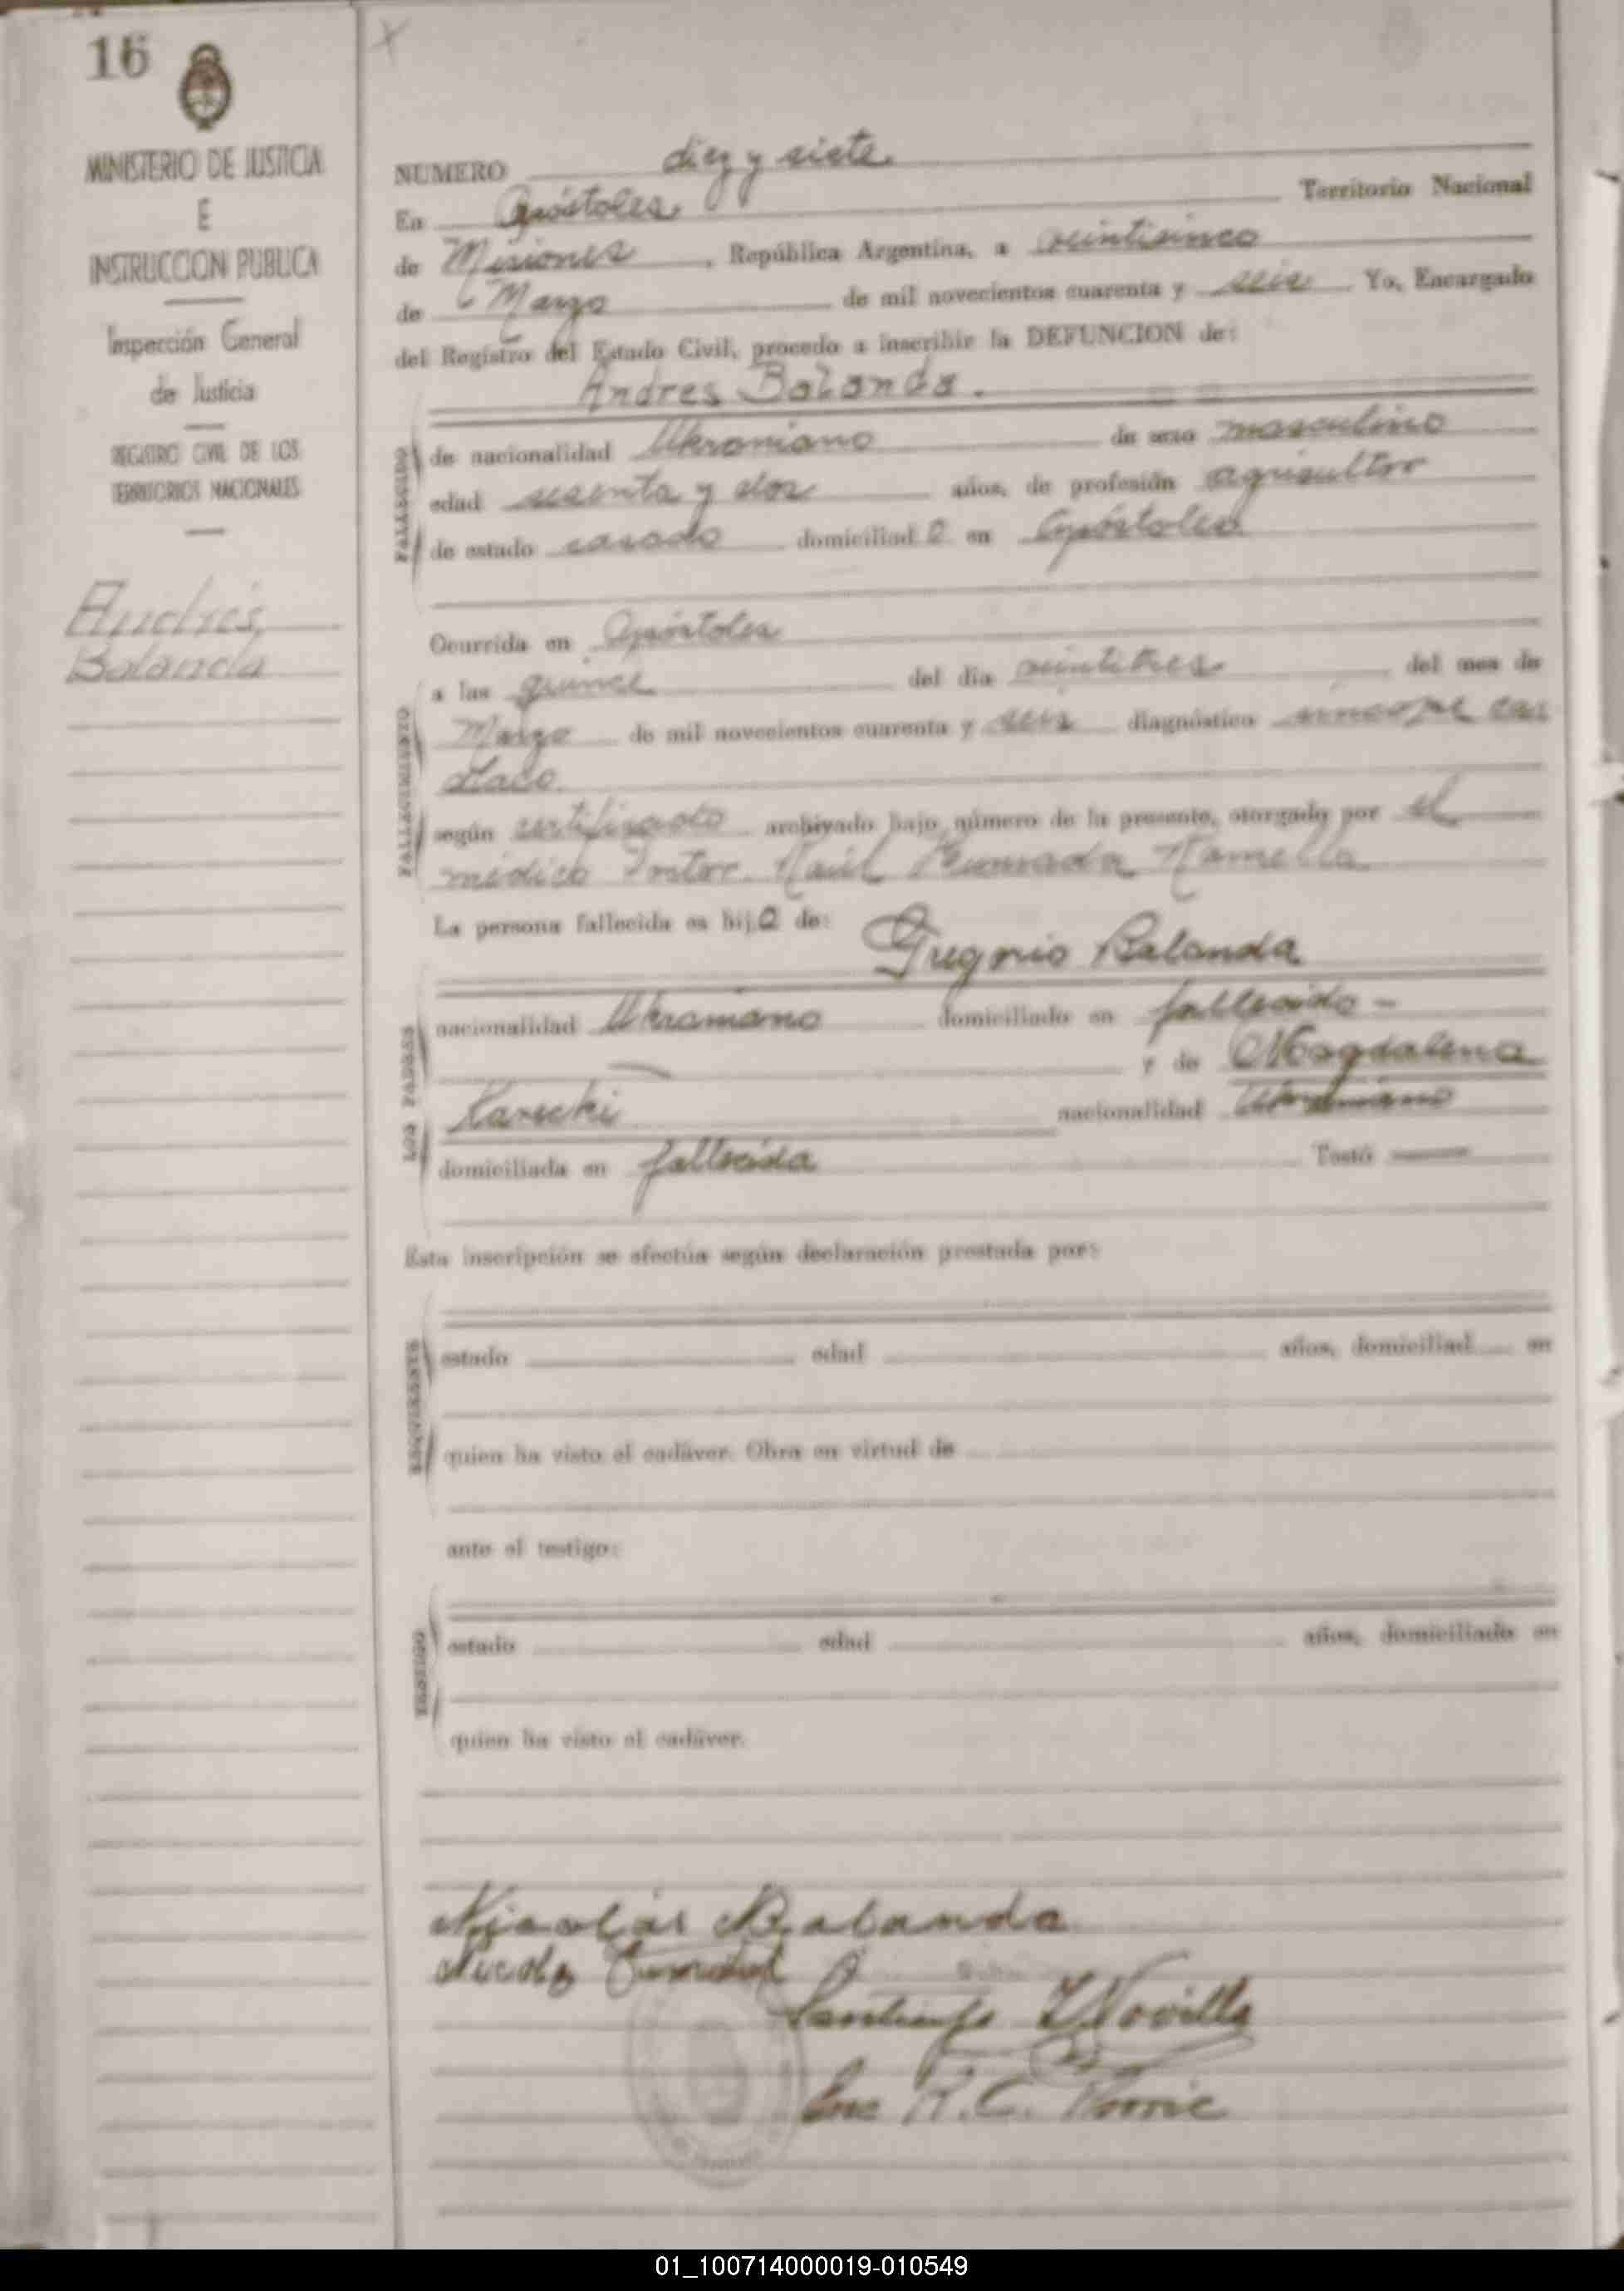 16
MINISTERIO DE JUSTICIA
E
INSTRUCCION PUBLICA
Inspección General
de Justicia
REGISTRO CIVIL DE LOS
TERRITORIOS NACIONALES
Andrés
Balanda
NUMERO diez y siete
En Apóstoles Territorio Nacional
de Misiones, República Argentina, a veinticinco
de Marzo de mil novecientos cuarenta y seis Yo, Encargado
del Registro del Estado Civil, procedo a inscribir la DEFUNCION de:
Andres Balanda.
FALLECIDO
de nacionalidad Ukraniano de sexo masculino
edad sesenta y dos años, de profesión agricultor
de estado casado domiciliad o en Apóstoles
FALLECIMIENTO
Ocurrida en Apóstoles
a las quince del día veintitres del mes de
Marzo de mil novecientos cuarenta y seis diagnóstico síncope car
díaco.
según certificado archivado bajo número de la presente, otorgado por el
médico Doctor Raúl Ramella
La persona fallecida es hijo de:
Gregorio Balanda
LOS PADRES
nacionalidad Ukraniano domiciliado en fallecido -
y de Magdalena
nacionalidad Ukraniano
domiciliada en fallecida Testó
Esta inscripción se efectúa según declaración prestada por:
REQUIRENTE
estado edad años, domiciliad en
quien ha visto el cadáver. Obra en virtud de
ante el testigo:
TESTIGO
estado edad años, domiciliado en
quien ha visto el cadáver.
Nicolás Balanda
Santiago Novilla
Enc R.C.
01_100714000019-010549